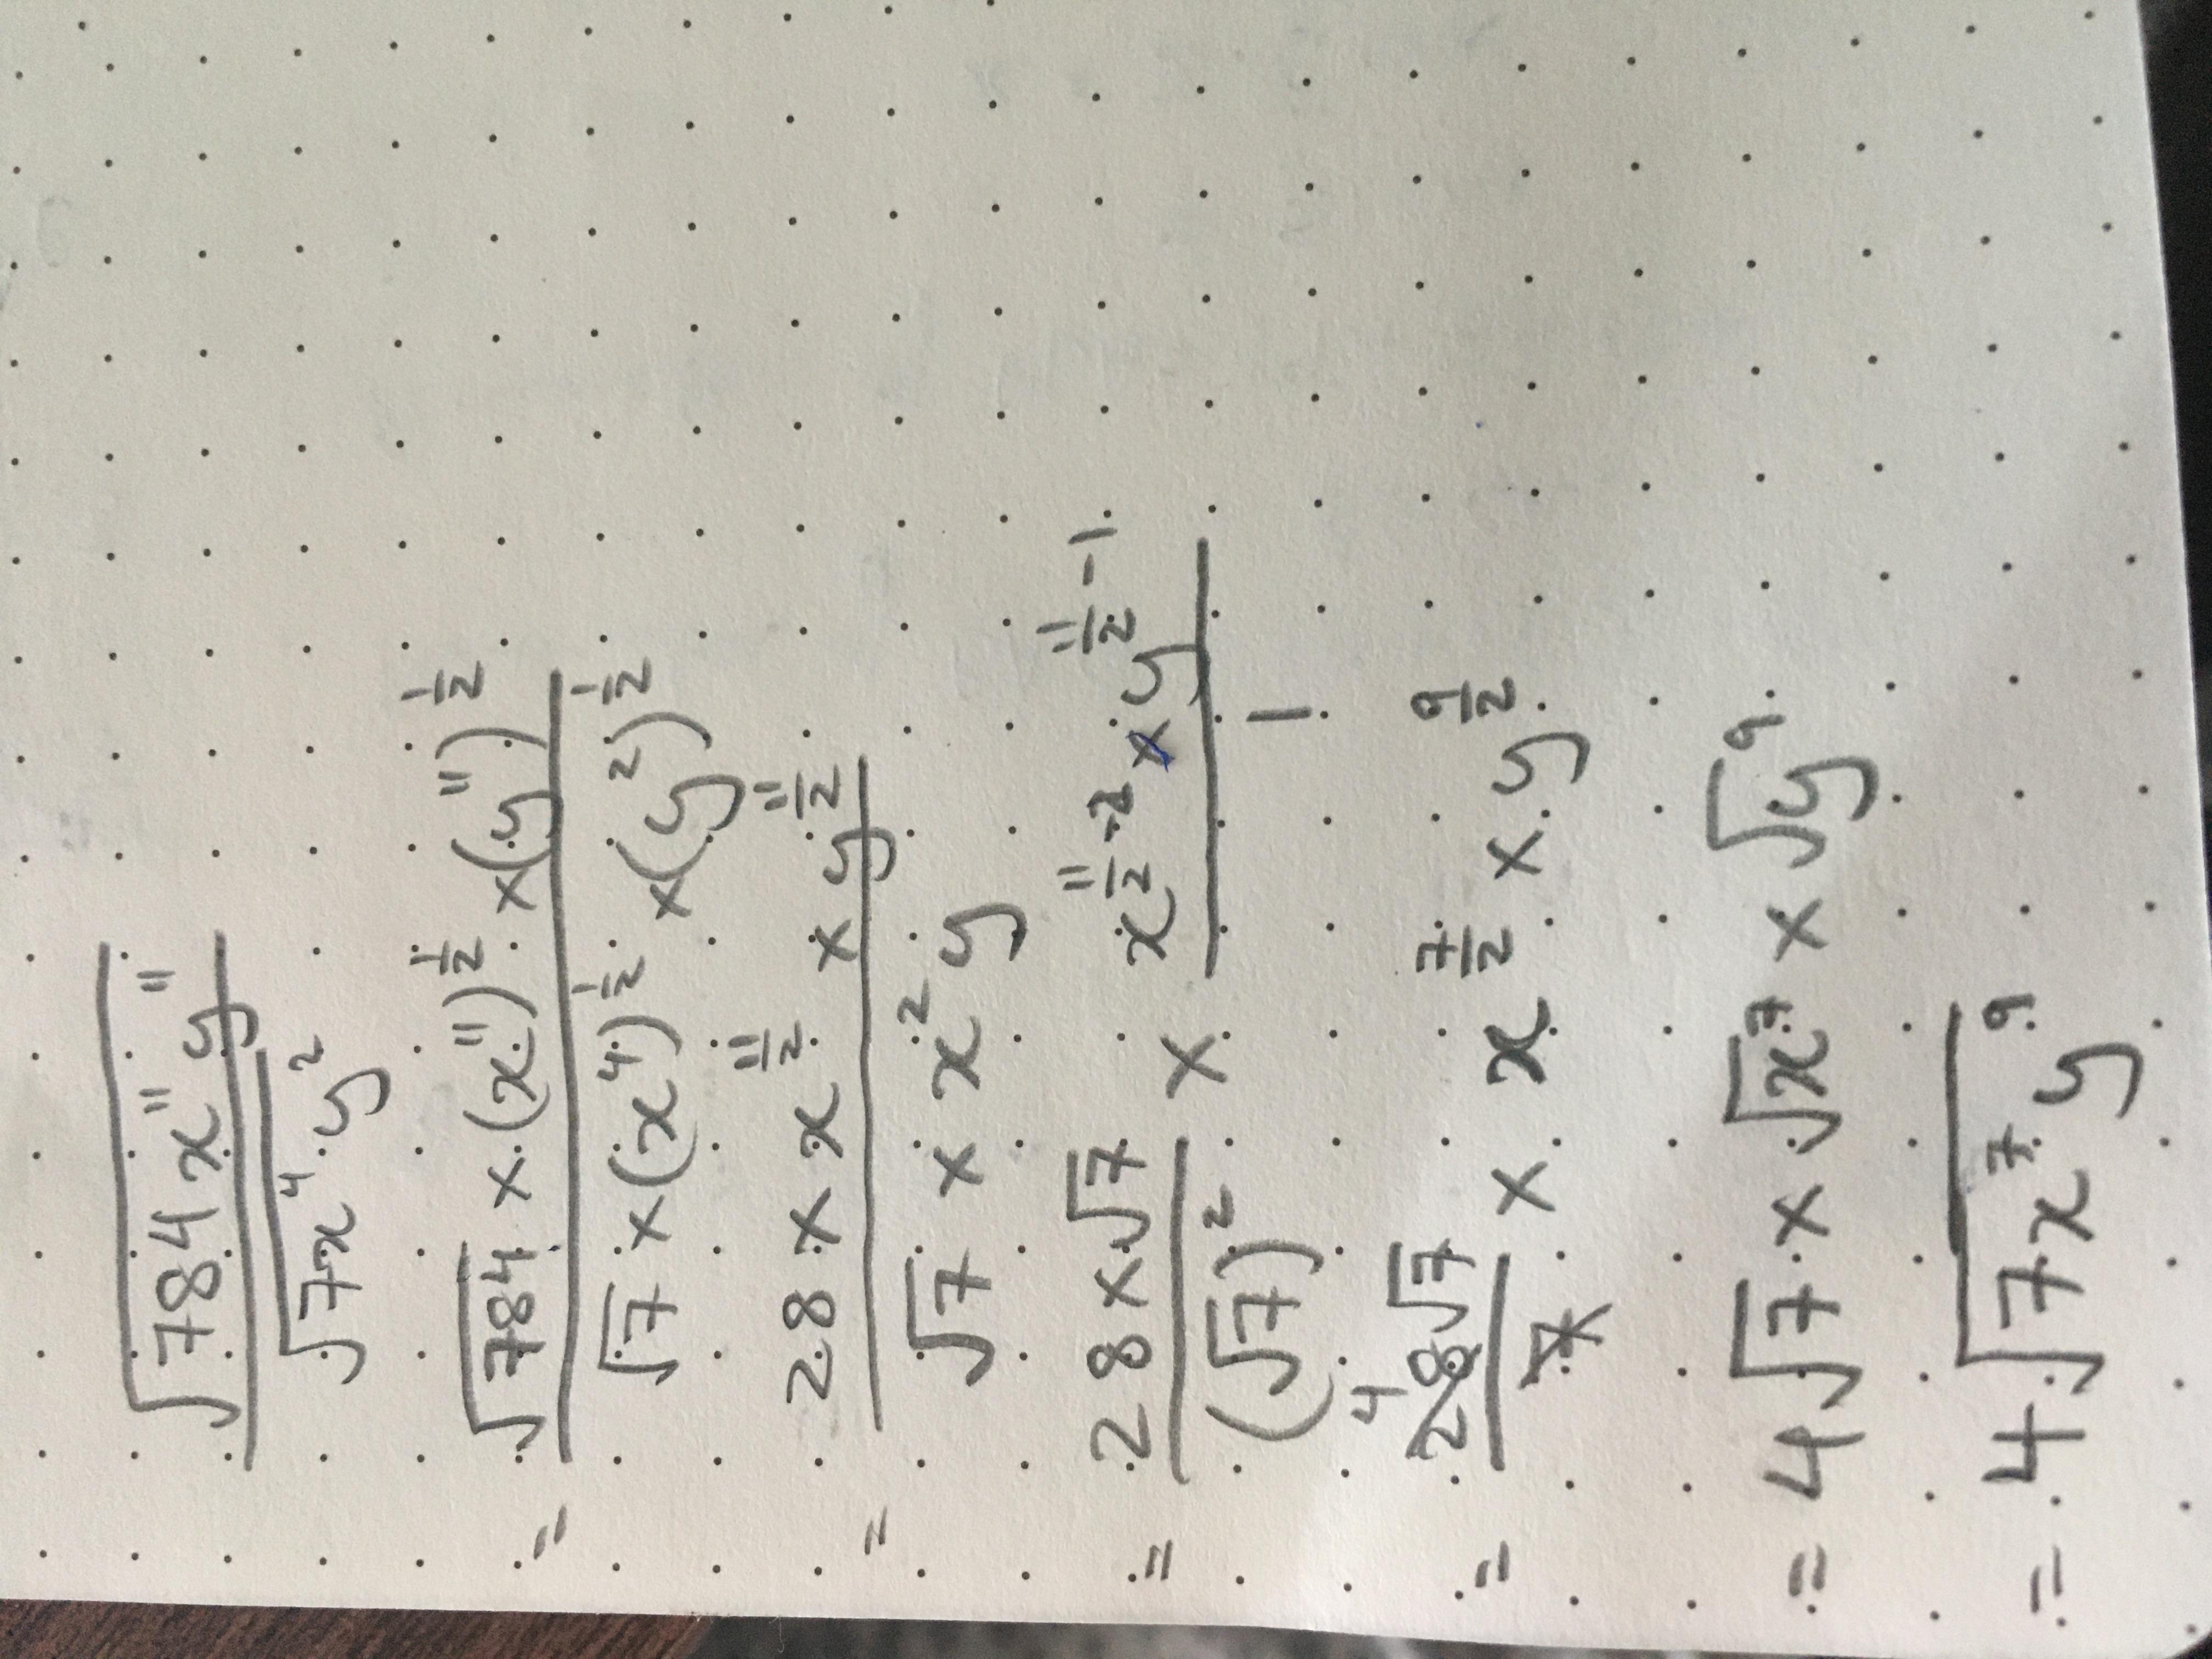 √(784x¹¹y¹¹) / √(7x⁴y²)
= (√784 × (x¹¹)^(1/2) × (y¹¹)^(1/2)) / (√7 × (x⁴)^(1/2) × (y²)^(1/2))
= (28 × x^(11/2) × y^(11/2)) / (√7 × x² y)
= (28 × √7) / (√7)² × (x^(11/2 - 2) × y^(11/2 - 1)) / 1
= 4 28√7 / 7 × x^(7/2) × y^(9/2)
= 4√7 × √x⁷ × √y⁹
= 4√(7x⁷y⁹)